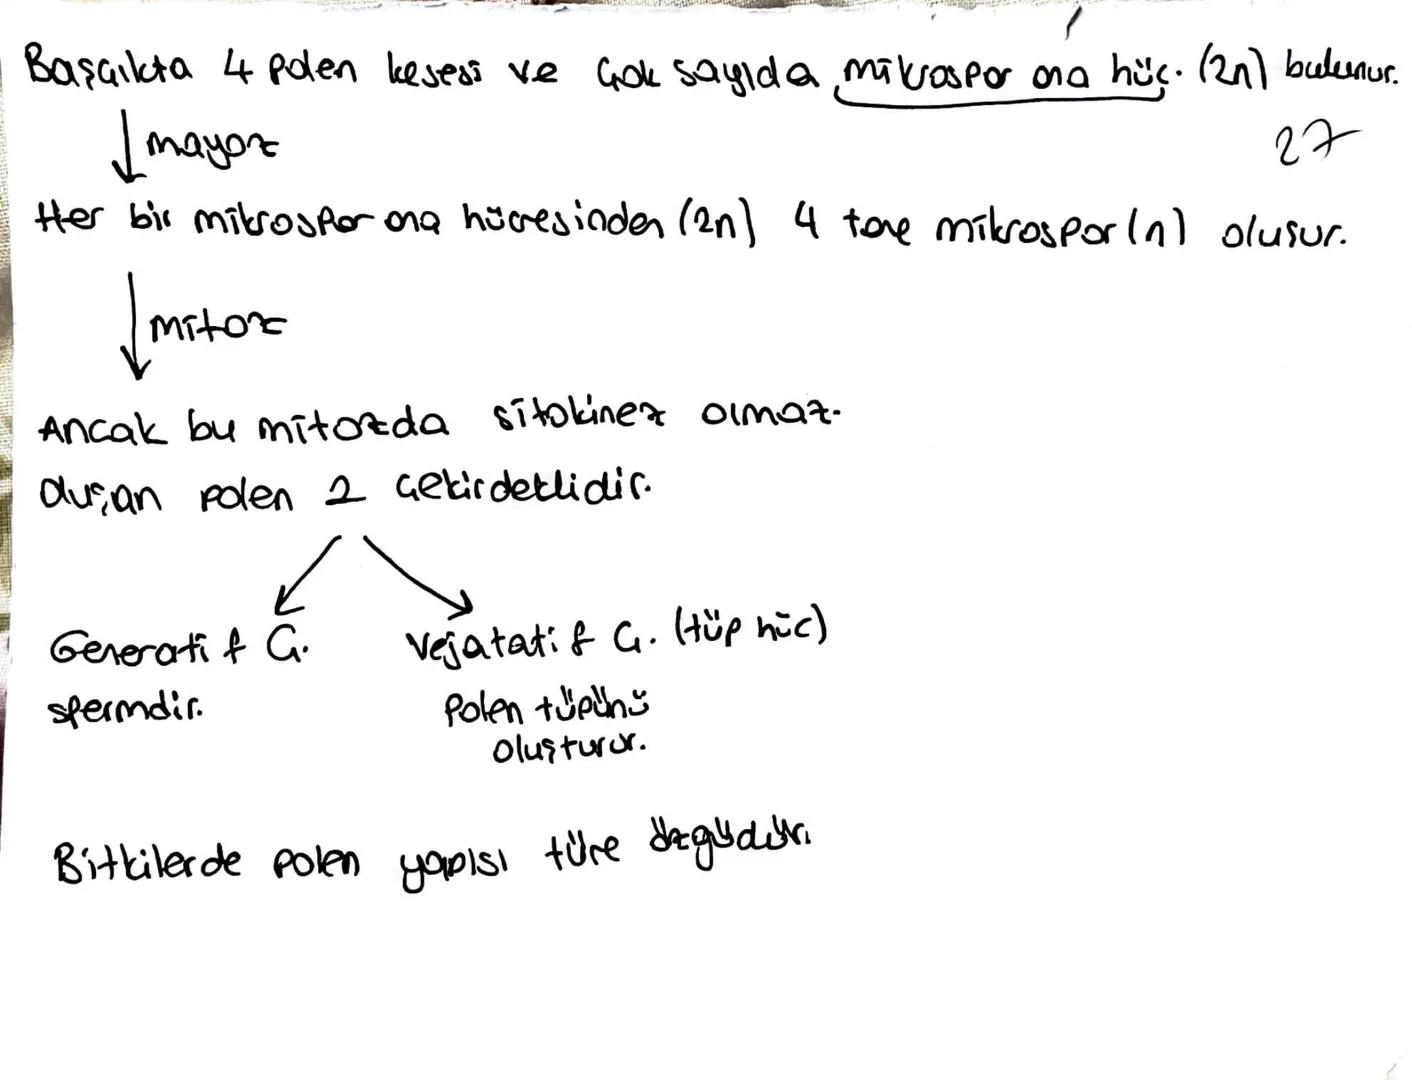 Başçıkta 4 polen kesesi ve çok sayıda mikrospor ana hüc. (2n) bulunur.
↓ mayoz
27
Her bir mikrospor ana hücresinden (2n) 4 tane mikrospor (n) oluşur.
↓ mitoz
Ancak bu mitozda sitokinez olmaz.
Oluşan polen 2 çekirdeklidir.
Generatif Ç. Vejatatif Ç. (tüp hüc)
spermdir. Polen tüpünü
oluşturur.
Bitkilerde polen yapısı türe özgüdür.